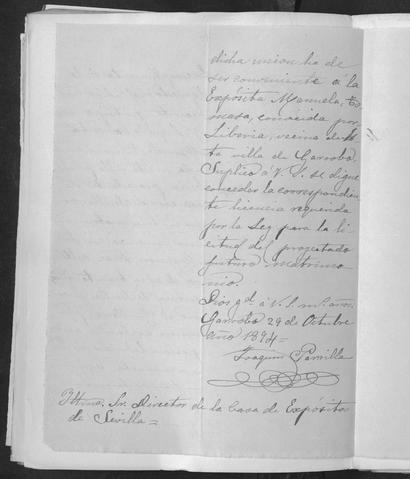 dicha union ha de
ser conveniente á la
Expósita Manuela, To
masa, conocida por
Liberia, vecina de és
ta villa de Garrobo.
Suplico á V. S. se digne
conceder la correspondien
te licencia requerida
por la Ley para la li
citud del proyectado
futuro matrimo
nio.
Dios gde á V. S. ms. años.
Garrobo 29 de Octubre
año 1894=
Joaquin Parrilla
Iltmo. Sr. Director de la Casa de Expósitos
de Sevilla=